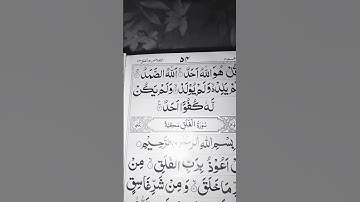 ۵۴
هُوَ اللّٰهُ اَحَدٌ ۚ اَللّٰهُ الصَّمَدُ ۚ
يَلِدْ ۙ وَلَمْ يُوْلَدْ ۙ وَلَمْ يَكُنْ
لَّهٗ كُفُوًا اَحَدٌ
سُوْرَةُ الْفَلَقِ مَكِّيَّة
بِسْمِ اللّٰهِ الرَّحْمٰنِ الرَّحِيْمِ
اَعُوْذُ بِرَبِّ الْفَلَقِ ۙ مِنْ
مَا خَلَقَ ۙ وَمِنْ شَرِّ غَاسِقٍ